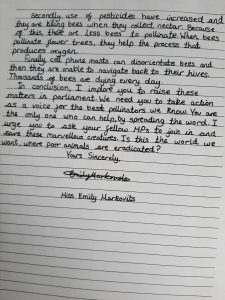 Secondly, use of pesticides have increased and
they are killing bees when they collect nectar. Because
of this, there are less bees to pollinate. When bees
pollinate flower trees, they help the process that
produces oxygen.
Finally, cell phone masts can disorientate bees and
then they are unable to navigate back to their hives.
Thousands of bees are dying every day.
In conclusion, I implore you to raise these
matters in parliament. We need you to take action
as a voice for the best pollinators we know. You are
the only one who can help, by spreading the word. I
urge you to ask your fellow MPs to join in and
save these marvellous creatures. Is this the world we
want, where poor animals are eradicated?
Yours Sincerely,
EmilyMarkovits
Miss Emily Markovits